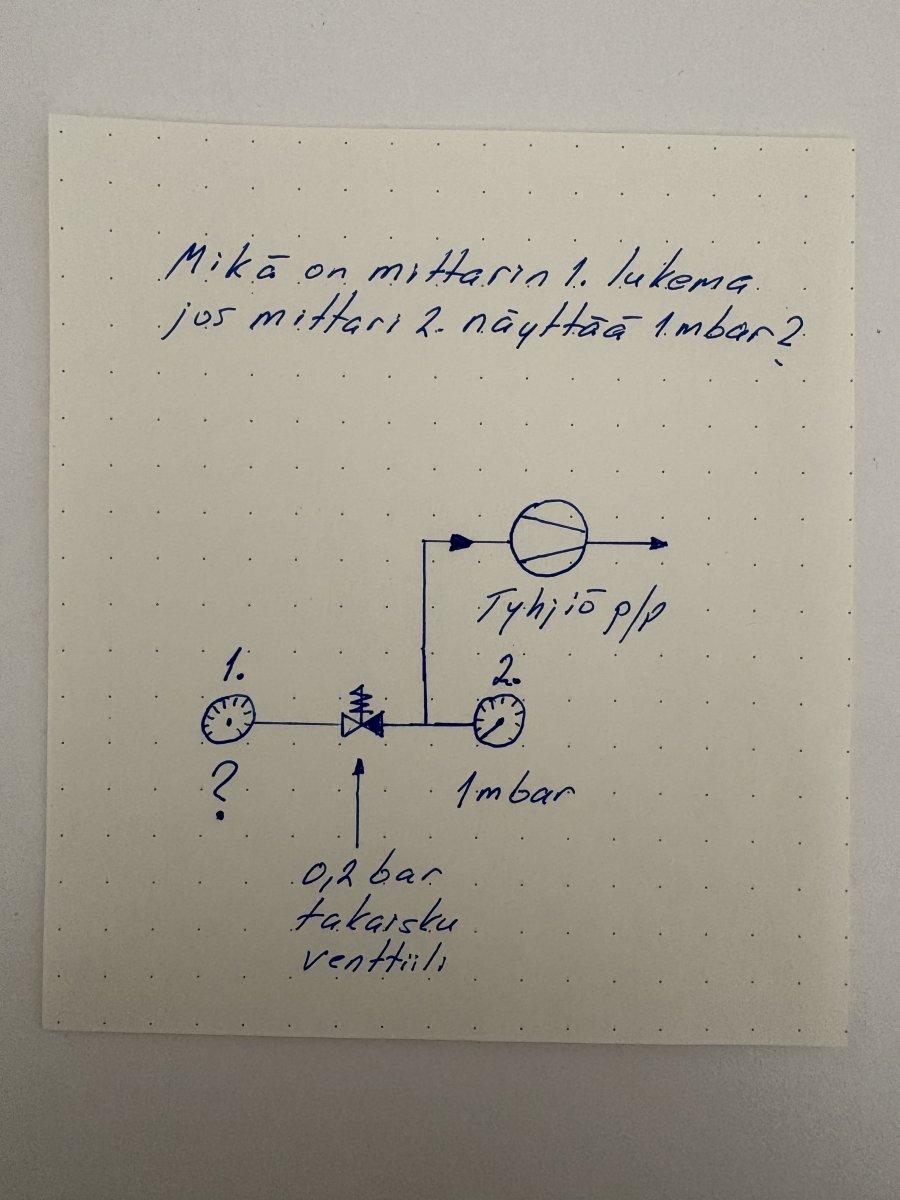 Mikä on mittarin 1. lukema
jos mittari 2. näyttää 1mbar?
Tyhjiö p/p
1.
2.
?
1mbar
0,2 bar
takaisku
venttiili